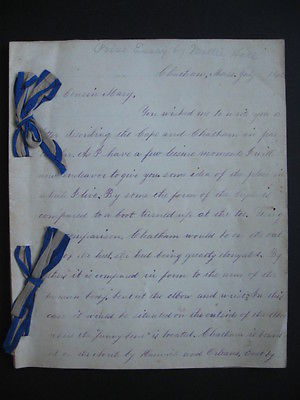 Prize Essay by Mattie
Chatham, Mass. Jan
Cousin Mary,
You wished me to write you a
describing the Cape and Chatham in par
As I have a few leisure moments I will
now endeavor to give you some idea of the place in
which I live. By some the form of the Cape is
compared to a boot turned up at the toe. Using
comparison, Chatham would be on the out
of the heel, the heel being greatly elongated. By
it is compared in form to the arm of the
human body, bent at the elbow and wrist. In this
case it would be situated on the outside of the elbow
where the "funny bone" is located. Chatham is bound
ed on the North by Harwich and Orleans, East by